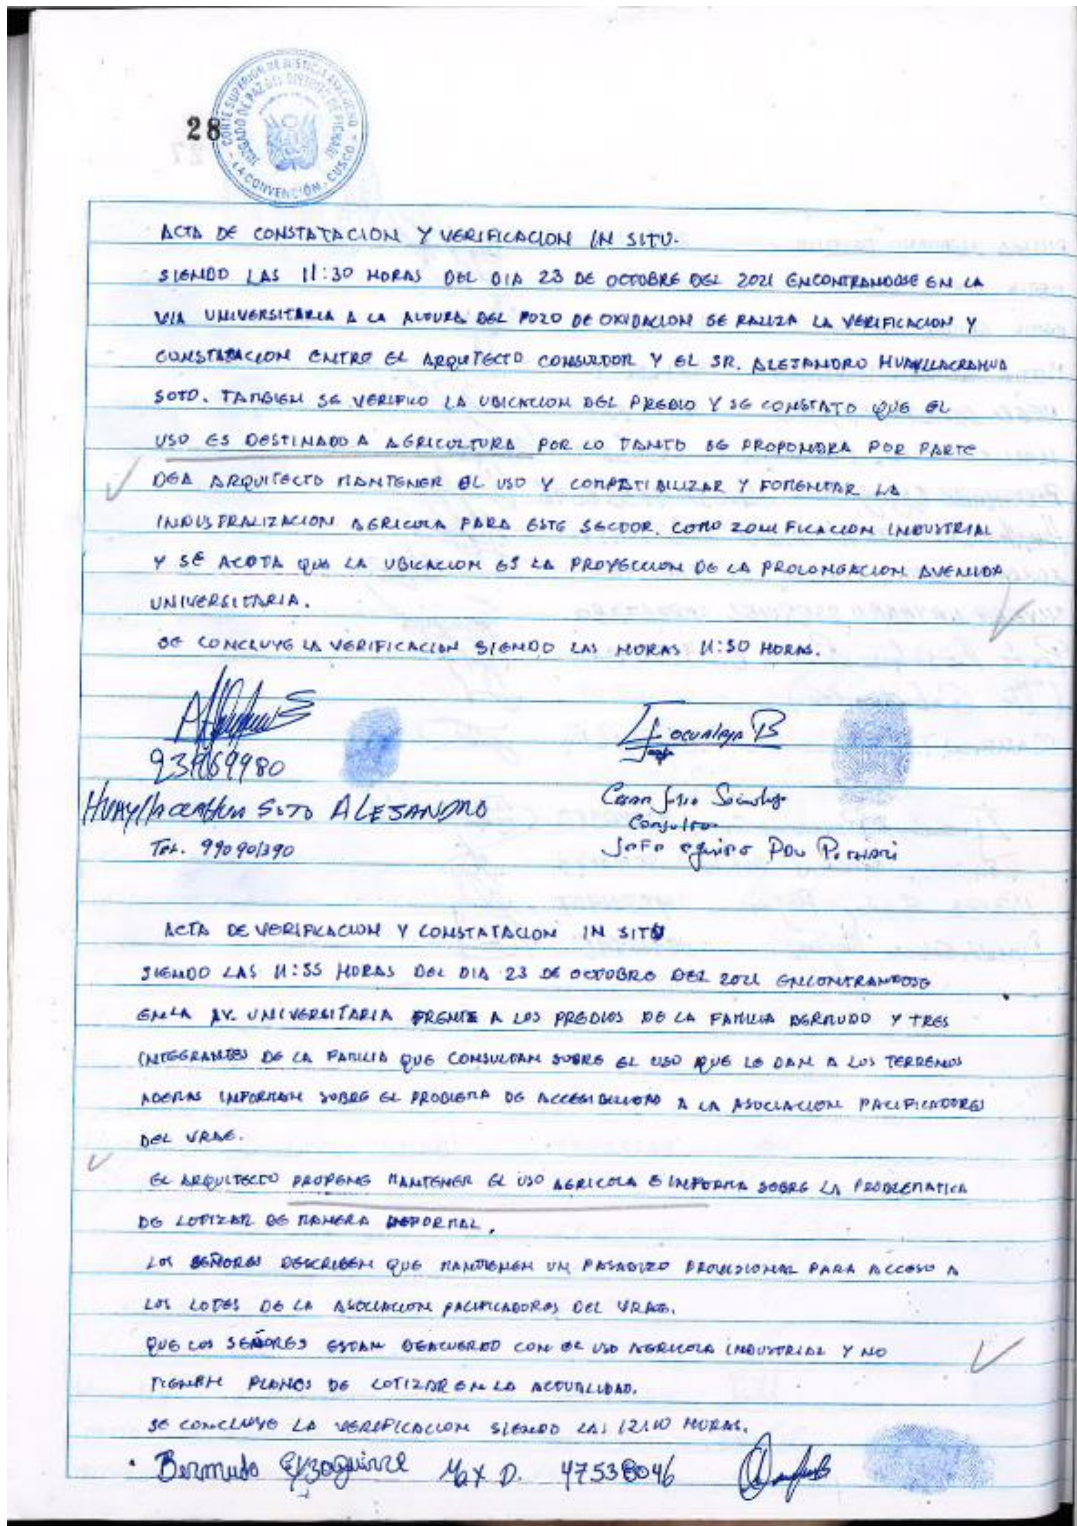 28
CORTE SUPERIOR DE JUSTICIA AYACUCHO
JUZGADO DE PAZ DEL DISTRITO DE PICHARI
LA CONVENCIÓN - CUSCO
ACTA DE CONSTATACION Y VERIFICACION IN SITU.
SIENDO LAS 11:30 HORAS DEL DIA 23 DE OCTUBRE DEL 2021 ENCONTRANDOSE EN LA
VIA UNIVERSITARIA A LA ALTURA DEL POZO DE OXIDACION SE RALIZA LA VERIFICACION Y
CONSTATACION ENTRE EL ARQUITECTO CONSULTOR Y EL SR. ALEJANDRO HUAYLLACRAHUA
SOTO. TAMBIEN SE VERIFICO LA UBICACION DEL PREDIO Y SE CONSTATO QUE EL
USO ES DESTINADO A AGRICULTURA POR LO TANTO SE PROPONDRA POR PARTE
DEL ARQUITECTO MANTENER EL USO Y COMPATIBILIZAR Y FOMENTAR LA
INDUSTRALIZACION AGRICOLA PARA ESTE SECTOR. COMO ZONIFICACION INDUSTRIAL
Y SE ACOTA QUE LA UBICACION ES LA PROYECCION DE LA PROLONGACION AVENIDA
UNIVERSITARIA.
SE CONCLUYE LA VERIFICACION SIENDO LAS HORAS 11:50 HORAS.
SOTO ALEJANDRO
Tel. 990901390
Consultor
ACTA DE VERIFICACION Y CONSTATACION IN SITU
SIENDO LAS 11:55 HORAS DEL DIA 23 DE OCTUBRE DEL 2021 ENCONTRANDOSE
EN LA AV. UNIVERSITARIA FRENTE A LOS PREDIOS DE LA FAMILIA BERMUDO Y TRES
INTEGRANTES DE LA FAMILIA QUE CONSULTAN SOBRE EL USO QUE LE DAN A LOS TERRENOS
ADEMAS INFORMAN SOBRE EL PROBLEMA DE ACCESIBILIDAD A LA ASOCIACION PACIFICADORES
DEL VRAE.
EL ARQUITECTO PROPONE MANTENER EL USO AGRICOLA E INFORMA SOBRE LA PROBLEMATICA
DE LOTIZAR DE MANERA INFORMAL.
LOS SEÑORES DESCRIBEN QUE MANTIENEN UN PASADIZO PROVISIONAL PARA ACCESO A
LOS LOTES DE LA ASOCIACION PACIFICADORES DEL VRAE.
QUE LOS SEÑORES ESTAN DEACUERDO CON EL USO AGRICOLA INDUSTRIAL Y NO
TIENEN PLANOS DE LOTIZAR EN LA ACTUALIDAD.
SE CONCLUYE LA VERIFICACION SIENDO LAS 12:10 HORAS.
Bermudo Eyzaguirre Max D. 47538046